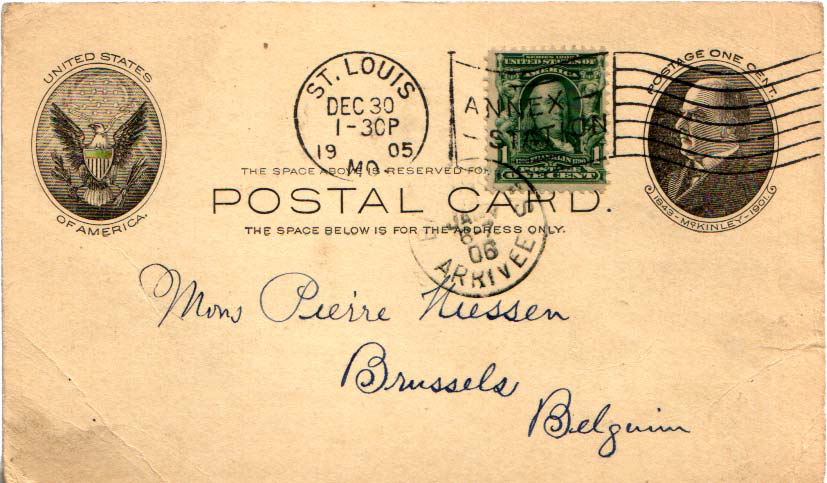 UNITED STATES
OF AMERICA.
ST. LOUIS
DEC 30
1-30P
19 05
MO.
ANNEX
STATION
SERIES 1902
UNITED STATES OF
AMERICA
FRANKLIN
1 1
POSTAGE
ONE CENT
POSTAGE ONE CENT.
1843-McKINLEY-1901.
THE SPACE ABOVE IS RESERVED FOR
POSTAL CARD.
THE SPACE BELOW IS FOR THE ADDRESS ONLY.
06
ARRIVEE
Mons Pierre Niessen
Brussels
Belguim